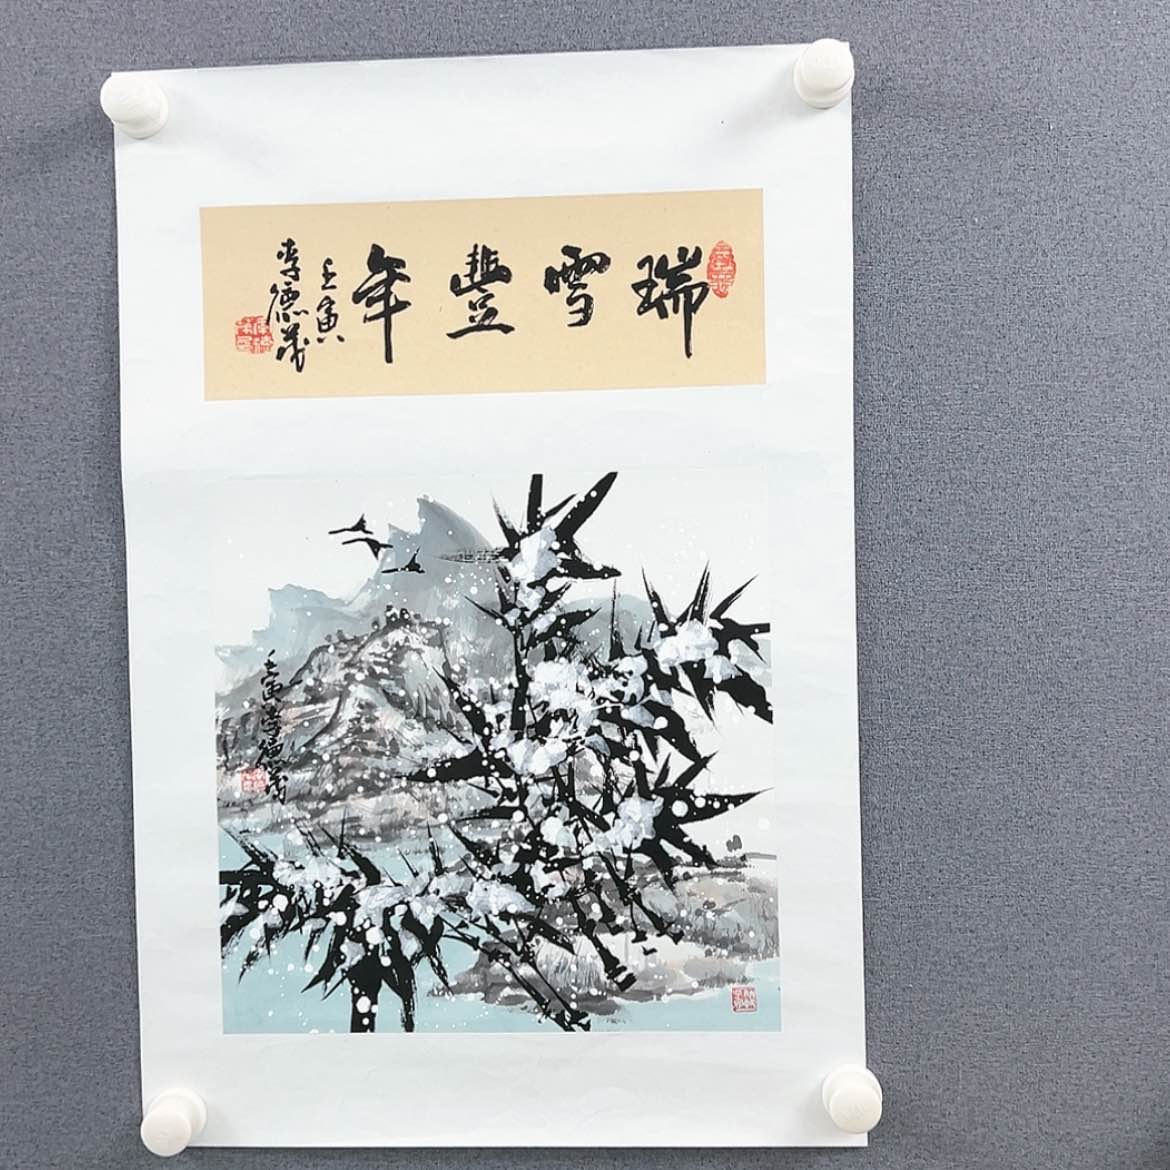 瑞雪豐年
壬寅
李德茂
壬寅李德茂